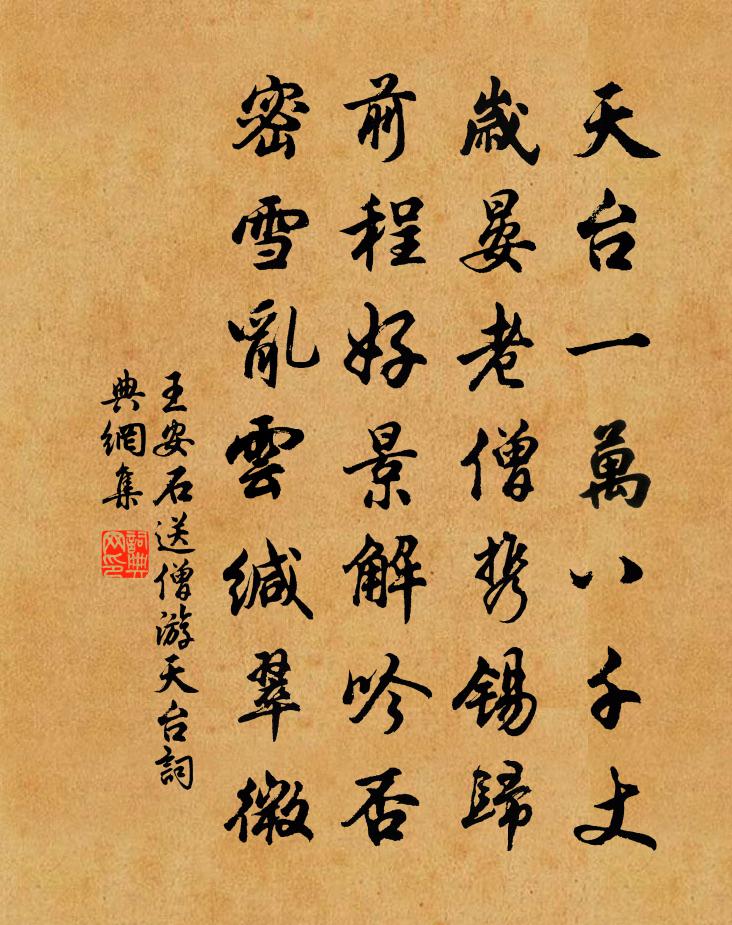 天台一萬八千丈
歲晏老僧携錫歸
前程好景解吟否
密雪亂雲緘翠微
王安石送僧游天台詞
典網集
詞典
网印